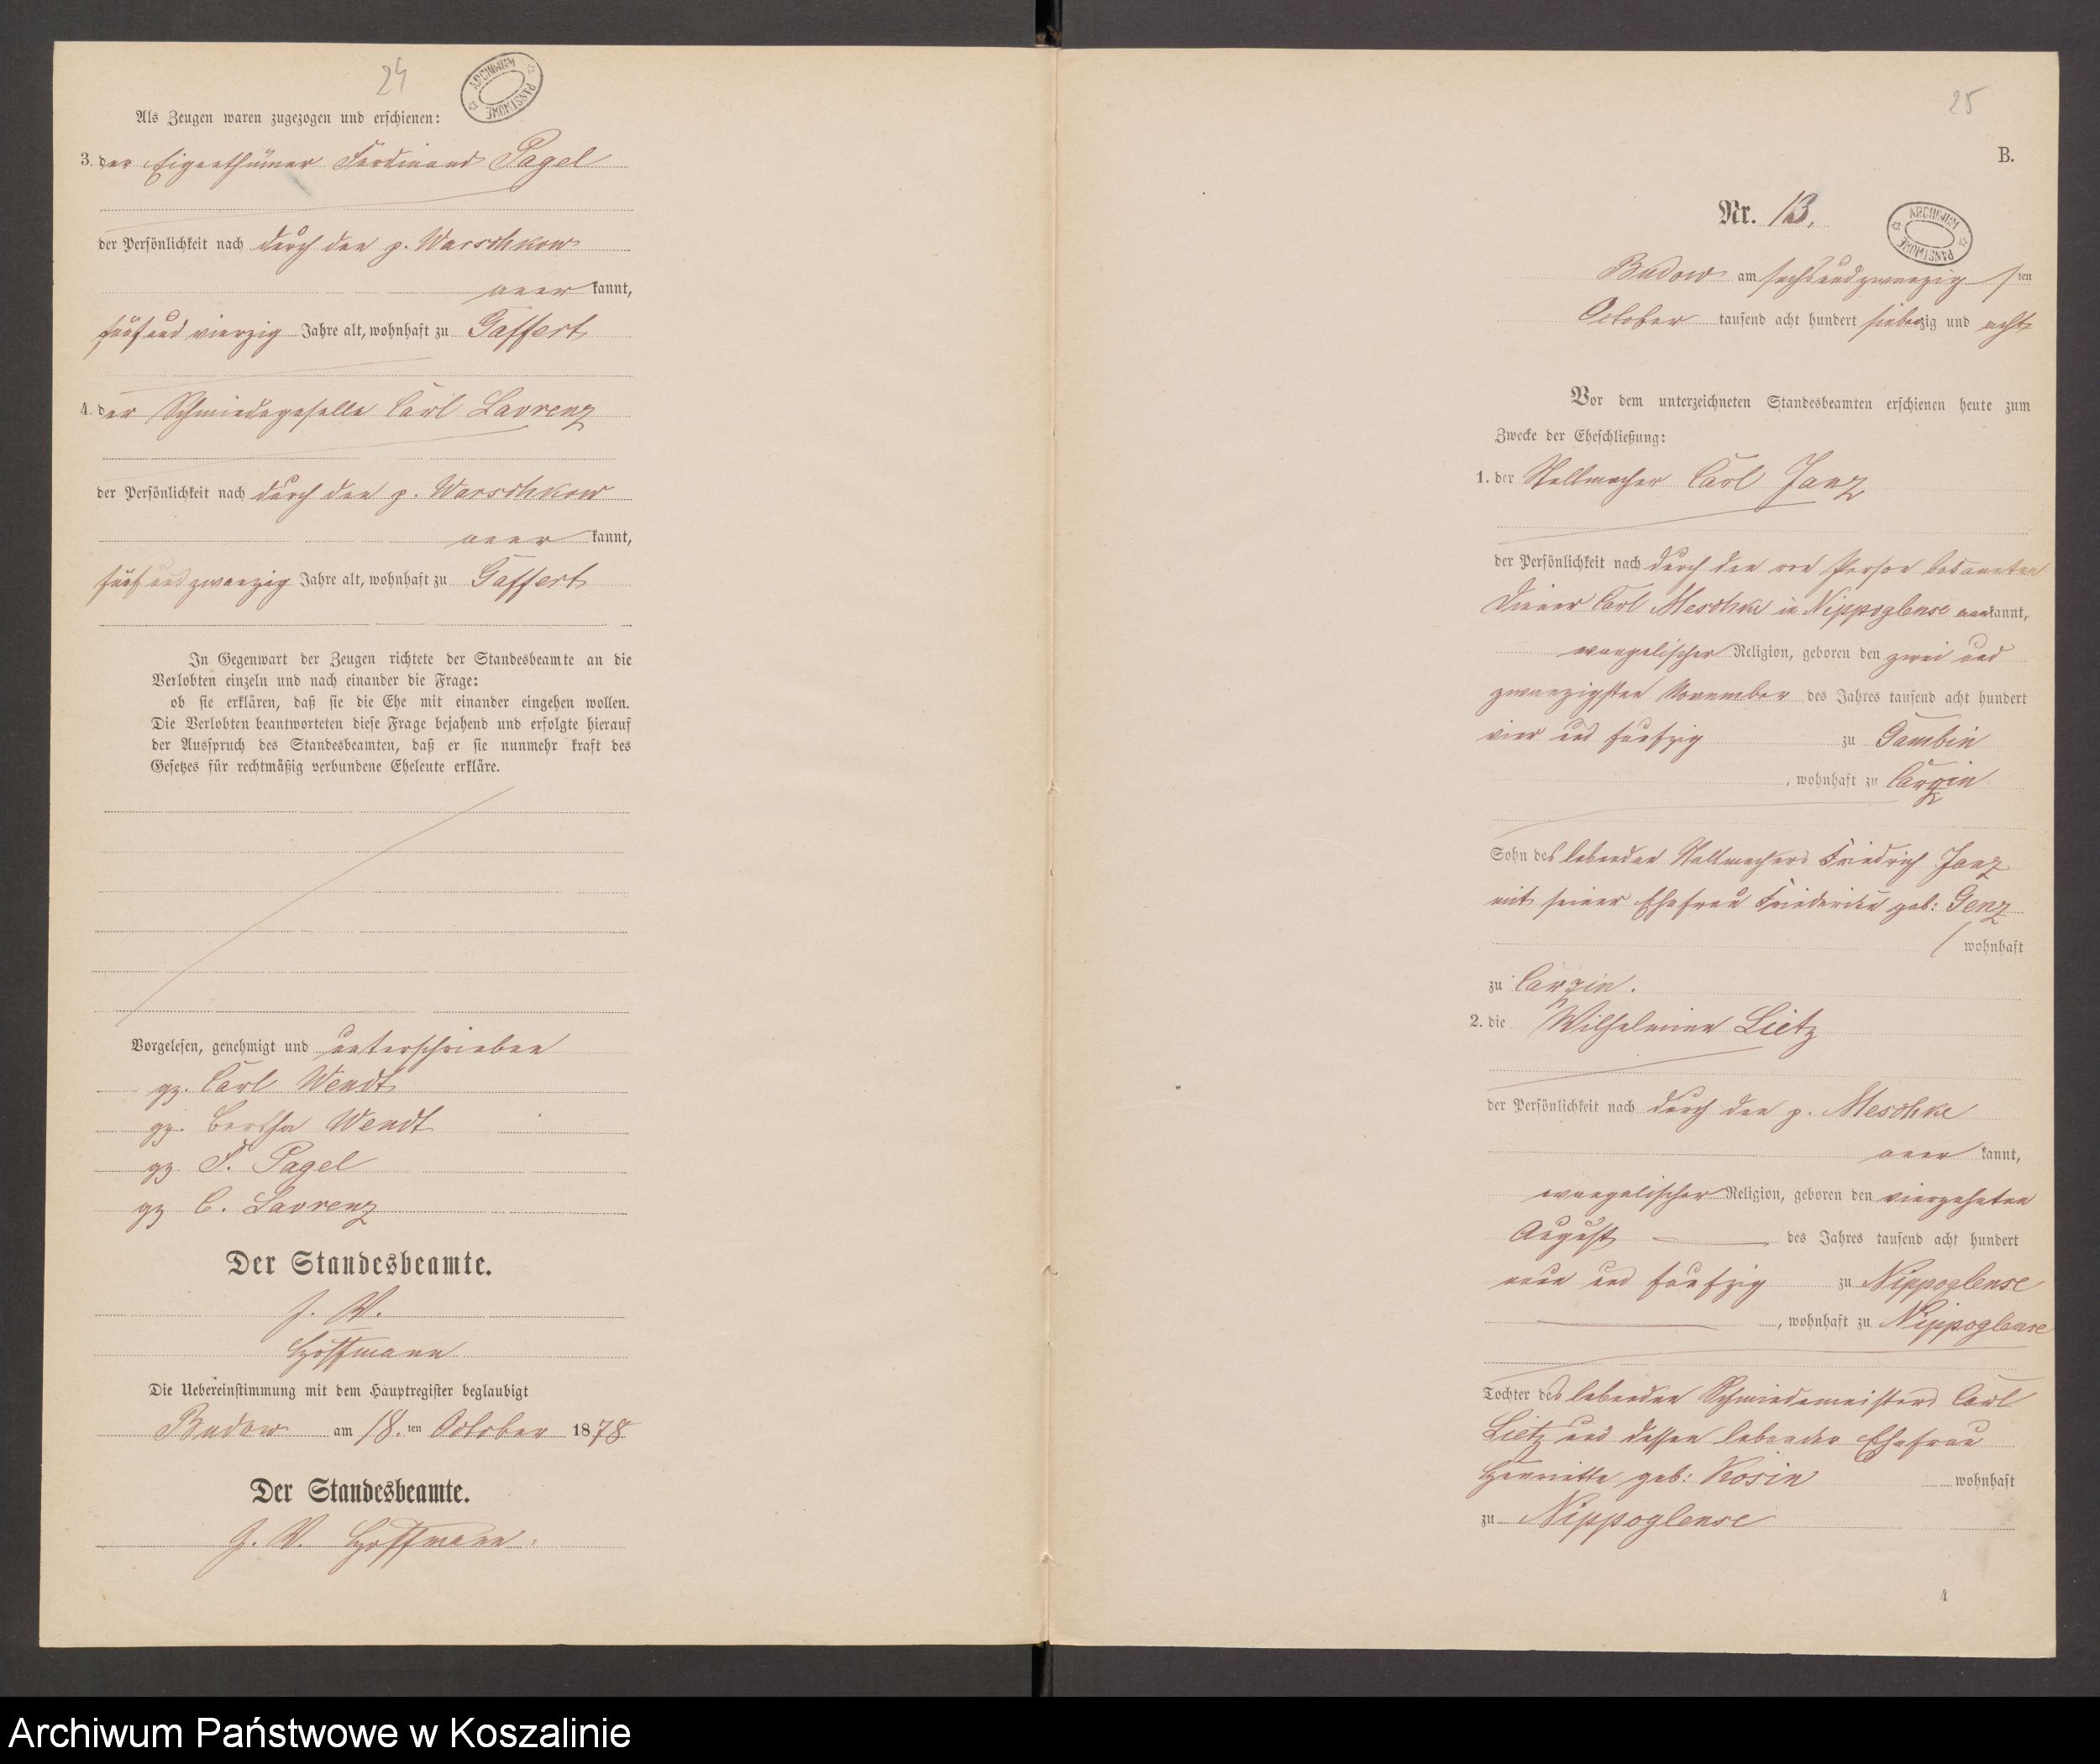 24
ARCHIWUM PAŃSTWOWE
Als Zeugen waren zugezogen und erschienen:
3. der Eigenthümer Ferdinand Pagel
der Persönlichkeit nach durch den p. Warschkow
aner kannt,
fünf und vierzig Jahre alt, wohnhaft zu Gaffert
4. der Schmiedegeselle Carl Lavrenz
der Persönlichkeit nach durch den p. Warschkow
aner kannt,
fünf und zwanzig Jahre alt, wohnhaft zu Gaffert
In Gegenwart der Zeugen richtete der Standesbeamte an die
Verlobten einzeln und nach einander die Frage:
ob sie erklären, daß sie die Ehe mit einander eingehen wollen.
Die Verlobten beantworteten diese Frage bejahend und erfolgte hierauf
der Ausspruch des Standesbeamten, daß er sie nunmehr kraft des
Gesetzes für rechtmäßig verbundene Eheleute erkläre.
Vorgelesen, genehmigt und unterschrieben
gz. Carl Wendt
gz. Bertha Wendt
gz. F. Pagel
gz C. Lavrenz
Der Standesbeamte.
J. V.
Hoffmann
Die Uebereinstimmung mit dem Hauptregister beglaubigt
Budow am 18. ten October 1878
Der Standesbeamte.
J. V. Hoffmann
25
B.
Nr. 13.
ARCHIWUM PAŃSTWOWE
Budow am sechsundzwanzig ten
October tausend acht hundert siebenzig und acht
Vor dem unterzeichneten Standesbeamten erschienen heute zum
Zwecke der Eheschließung:
1. der Stellmacher Carl Janz
der Persönlichkeit nach durch den von Person bekannten
Diener Carl Meschke in Nippoglense anerkannt,
evangelischer Religion, geboren den zwei und
zwanzigsten November des Jahres tausend acht hundert
vier und funfzig zu Gambin
, wohnhaft zu Carzin
Sohn des lebenden Stellmachers Friedrich Janz
mit seiner Ehefrau Friederike geb: Genz
wohnhaft
zu Carzin.
2. die Wilhelmine Lietz
der Persönlichkeit nach durch den p. Meschke
aner kannt,
evangelischer Religion, geboren den vierzehnten
August des Jahres tausend acht hundert
neun und funfzig zu Nippoglense
, wohnhaft zu Nippoglense
Tochter des lebenden Schmiedemeisters Carl
Lietz und dessen lebender Ehefrau
Henriette geb: Kosin wohnhaft
zu Nippoglense
4
Archiwum Państwowe w Koszalinie